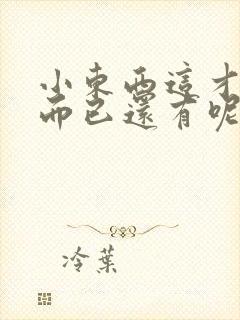 小東西這才
而已還有呢
冷葉